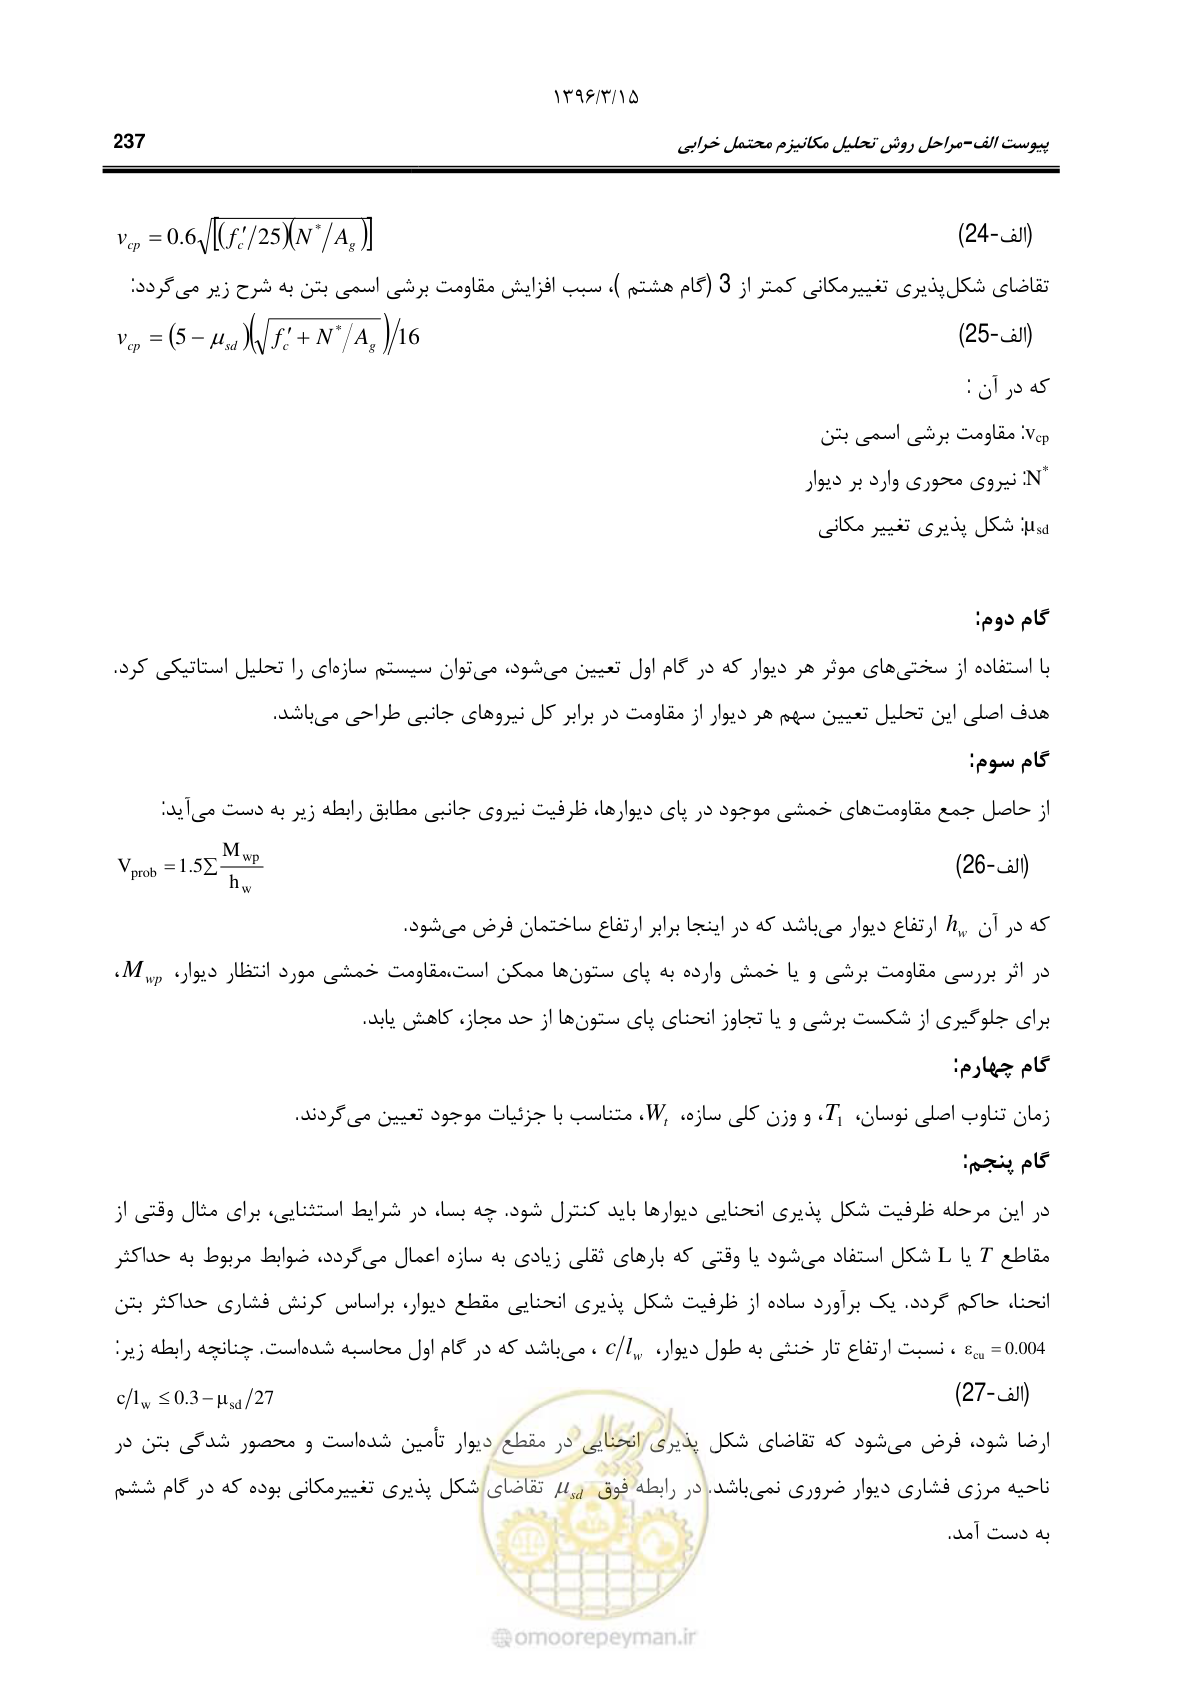 ۱۳۹۶/۳/۱۵
پیوست الف-مراحل روش تحلیل مکانیزم محتمل خرابی 237
(الف-24) v_cp = 0.6√[(f′_c/25)(N*/A_g)]
تقاضای شکل‌پذیری تغییرمکانی کمتر از 3 (گام هشتم )، سبب افزایش مقاومت برشی اسمی بتن به شرح زیر می‌گردد:
(الف-25) v_cp = (5 − μ_sd)(√(f′_c + N*/A_g))/16
که در آن :
v_cp: مقاومت برشی اسمی بتن
N*: نیروی محوری وارد بر دیوار
μ_sd: شکل پذیری تغییر مکانی
گام دوم:
با استفاده از سختی‌های موثر هر دیوار که در گام اول تعیین می‌شود، می‌توان سیستم سازه‌ای را تحلیل استاتیکی کرد.
هدف اصلی این تحلیل تعیین سهم هر دیوار از مقاومت در برابر کل نیروهای جانبی طراحی می‌باشد.
گام سوم:
از حاصل جمع مقاومت‌های خمشی موجود در پای دیوارها، ظرفیت نیروی جانبی مطابق رابطه زیر به دست می‌آید:
(الف-26) V_prob = 1.5∑ M_wp/h_w
که در آن h_w ارتفاع دیوار می‌باشد که در اینجا برابر ارتفاع ساختمان فرض می‌شود.
در اثر بررسی مقاومت برشی و یا خمش وارده به پای ستون‌ها ممکن است،مقاومت خمشی مورد انتظار دیوار، M_wp،
برای جلوگیری از شکست برشی و یا تجاوز انحنای پای ستون‌ها از حد مجاز، کاهش یابد.
گام چهارم:
زمان تناوب اصلی نوسان، T_1، و وزن کلی سازه، W_t، متناسب با جزئیات موجود تعیین می‌گردند.
گام پنجم:
در این مرحله ظرفیت شکل پذیری انحنایی دیوارها باید کنترل شود. چه بسا، در شرایط استثنایی، برای مثال وقتی از
مقاطع T یا L شکل استفاد می‌شود یا وقتی که بارهای ثقلی زیادی به سازه اعمال می‌گردد، ضوابط مربوط به حداکثر
انحنا، حاکم گردد. یک برآورد ساده از ظرفیت شکل پذیری انحنایی مقطع دیوار، براساس کرنش فشاری حداکثر بتن
ε_cu = 0.004 ، نسبت ارتفاع تار خنثی به طول دیوار، c/l_w ، می‌باشد که در گام اول محاسبه شده‌است. چنانچه رابطه زیر:
(الف-27) c/l_w ≤ 0.3 − μ_sd/27
ارضا شود، فرض می‌شود که تقاضای شکل پذیری انحنایی در مقطع دیوار تأمین شده‌است و محصور شدگی بتن در
ناحیه مرزی فشاری دیوار ضروری نمی‌باشد. در رابطه فوق μ_sd تقاضای شکل پذیری تغییرمکانی بوده که در گام ششم
به دست آمد.
امور پیمان
omoorepeyman.ir